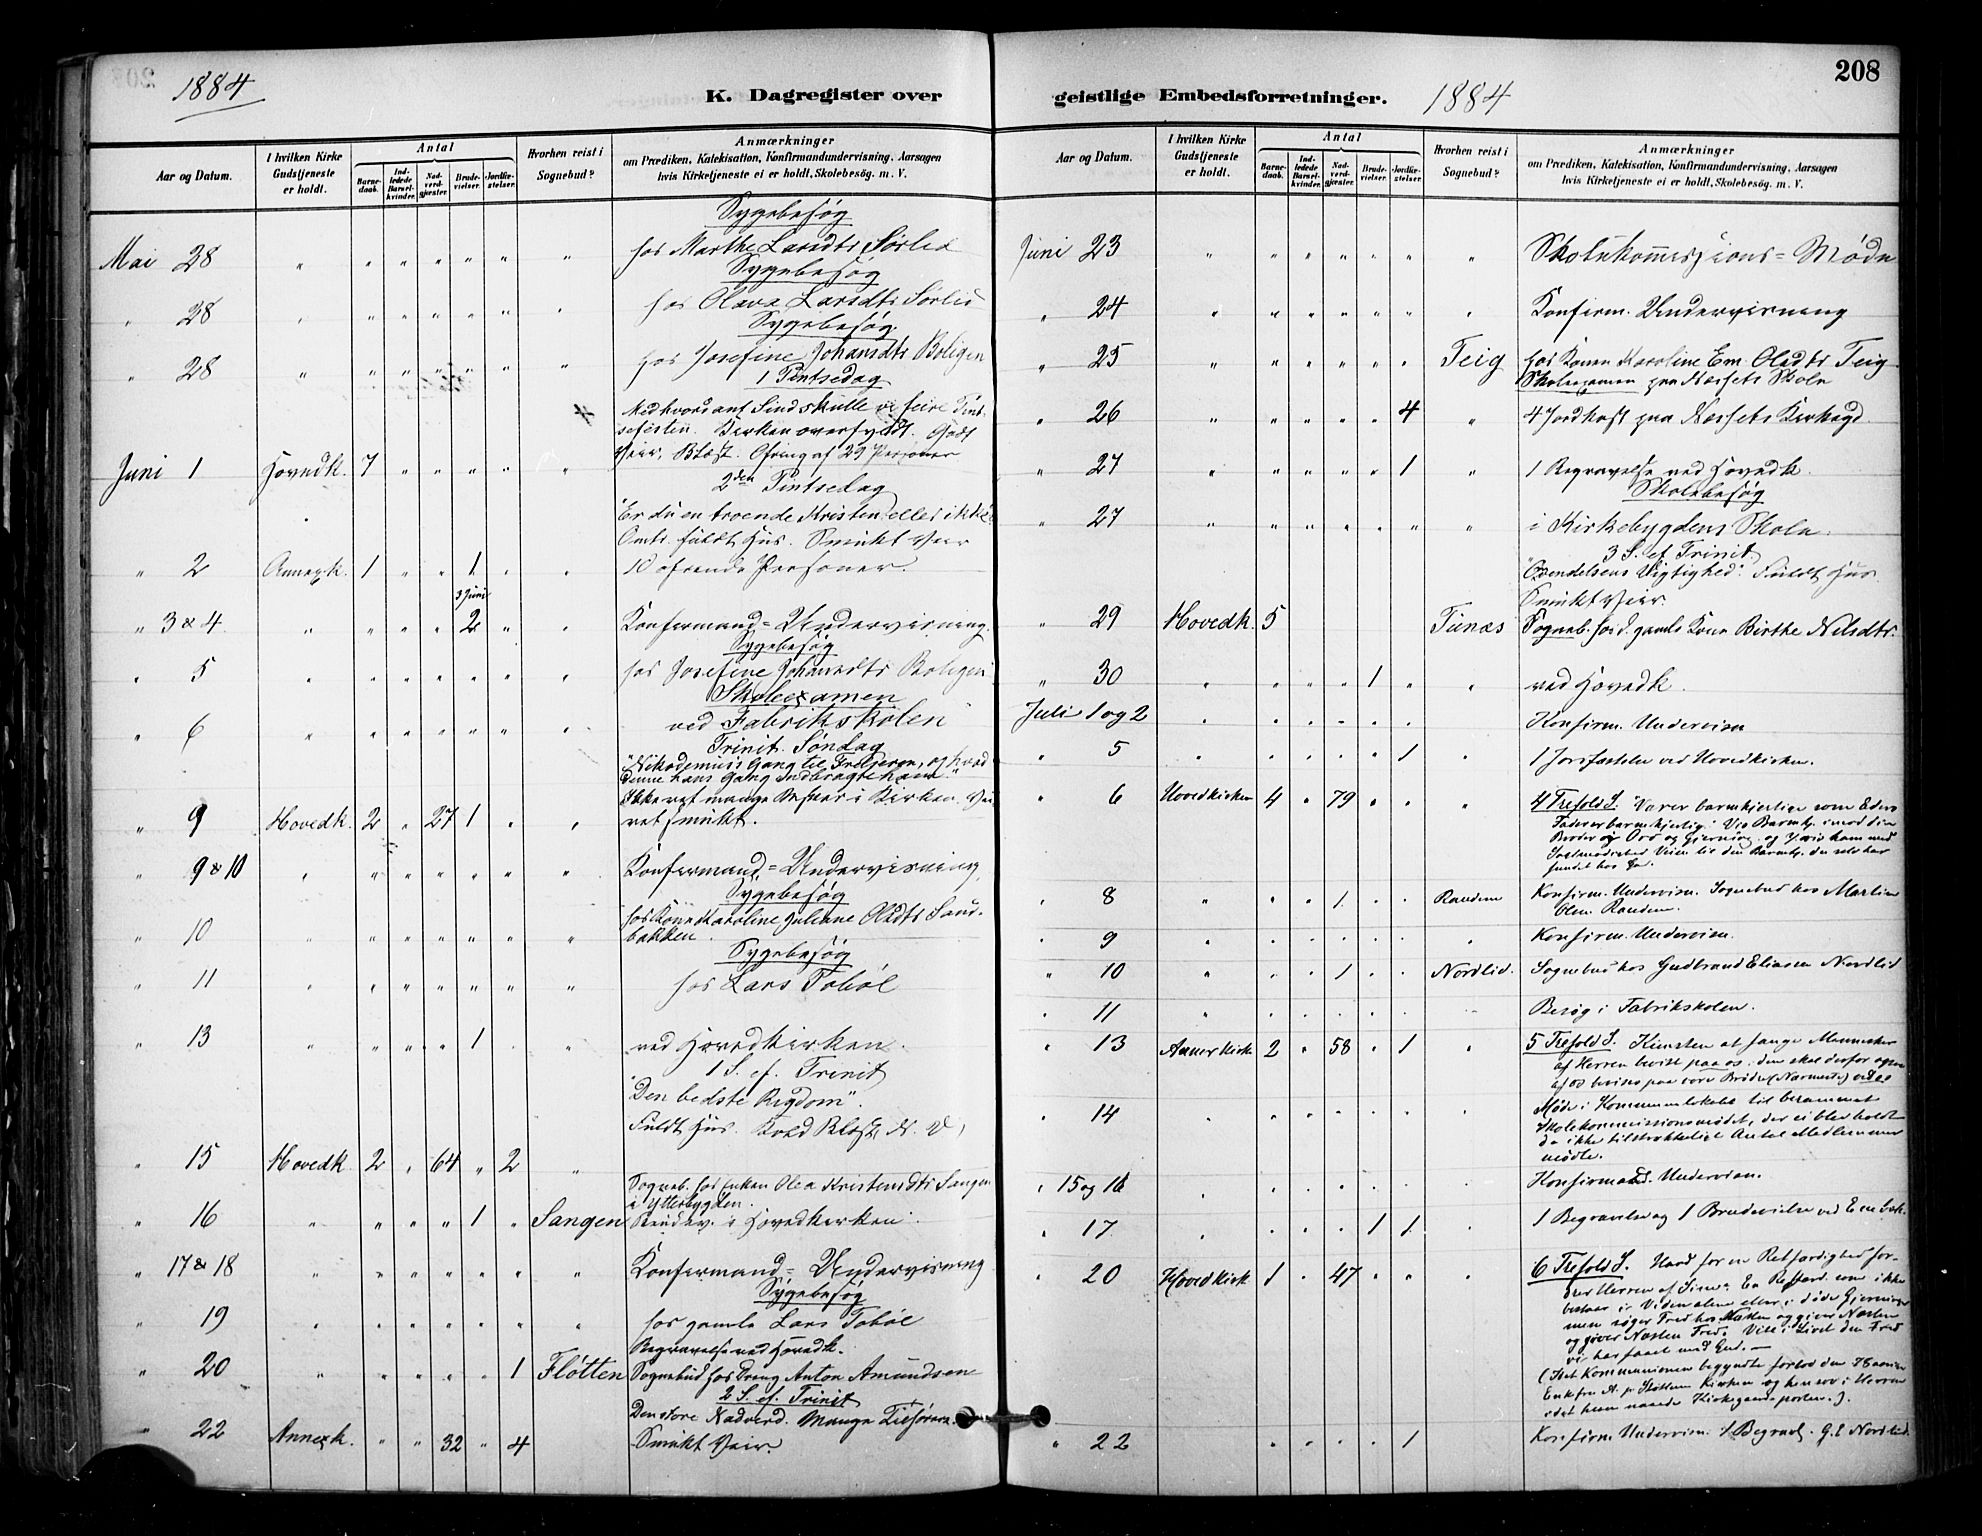 208
1884
K. Dagregister over
geistlige Embedsforretninger.
1884
Aar og Datum.
I hvilken Kirke Gudstjeneste er holdt.
Antal
Barnedaab.
Indledede Barselkvinder.
Nadverdgjæster.
Brudevielser.
Jordfæstelser.
Hvorhen reist i Sognebud?
Anmærkninger
om Prædiken, Katekisation, Konfirmandundervisning, Aarsagen
hvis Kirketjeneste ei er holdt, Skolebesøg. m. V.
Sygebesøg
Mai 28 " " " " " " " hos Marthe Larsdtr Sørlid
Sygebesøg
" 28 " " " " " " " hos Olava Larsdtr Sørlid
Sygebesøg
" 28 " " " " " " " hos Josefine Johansdtr Boligen
1 Pintsedag
Med hvordant Sind skulle vi feire Pint-
sefesten. Kirken overfyldt. Godt
Juni 1 Hovedk. 7 " " " " " Veir, Blæst. Ofring af 29 Personer
2den Pintsedag
"Er du en troende Kristen eller ikke
Omtr. fuldt Hus. Smukt Veir
" 2 Annexk. 1 " " 1 " " 10 ofrende Personer.
3 Juni
" 3 & 4 " " " " 2 " " Konfermand=Undervisning.
Sygebesøg
" 5 " " " " " " " hos Josefine Johansdtr Boligen
Skoleexamen
" 6 " " " " " " " ved Fabrikskolen
Trinit. Søndag
"Nikodemus's Gang til Frelseren, og hvad
denne hans Gang indbragte ham."
Ikke ret mange Besøer i Kirken. Vei
" 9 Hovedk. 2 " 27 1 " " ret smukt.
" 9 & 10 " " " " " " " Konfermand=Undervisning,
Sygebesøg
hos Kone Karoline Juliane Olsdtr Sand-
" 10 " " " " " " " bakken.
Sygebesøg
" 11 " " " " " " " hos Lars Tobøl
" 13 " " " " 1 " ved Hovedkirken.
1 S. ef. Trinit
"Den bedste Rigdom".
Fuldt Hus. Kold Blæst, N. V,
" 15 Hovedk. 2 " 64 " 2 "
Sogneb. hos Enken Olea Kristensdtr Sangen
i Ytterbygden.
" 16 " " " " 1 " Sangen Brudev. i Hovedkirken.
" 17 & 18 " " " " " " " Konfermand=Undervisning
Sygebesøg
" 19 " " " " " " " hos gamle Lars Tobøl
Begravelse ved Hovedk.
" 20 " " " " " 1 Fløtten Sognebud hos Dreng Anton Amundsen
2 S. ef. Trinit
Den store Nadverd. Mange Tilhørere.
" 22 Annexk. " " 32 " 4 Smukt Veir.
Aar og Datum.
I hvilken Kirke Gudstjeneste er holdt.
Antal
Barnedaab.
Indledede Barselkvinder.
Nadverdgjæster.
Brudevielser.
Jordfæstelser.
Hvorhen reist i Sognebud?
Anmærkninger
om Prædiken, Katekisation, Konfirmandundervisning, Aarsagen
hvis Kirketjeneste ei er holdt, Skolebesøg. m. V.
Juni 23 " " " " " " " Skolekommissions=Møde
" 24 " " " " " " " Konfirm. Undervisning
" 25 " " " " " " Teig hos Konen Karoline Em. Olsdtr Teig
Skoleexamen paa Næssets Skole
" 26 " " " " " 4 " 4 Jordkast paa Næssets Kirkegd
" 27 " " " " " 1 " 1 Begravelse ved Hovedk.
Skolebesøg
" 27 " " " " " " " i Kirkebygdens Skole.
3 S. ef Trinit
"Omvendelsens Vigtighed". Fuldt Hus
Smukt Veir.
" 29 Hovedk. 5 Tunæs Sogneb. hos d. gamle Kone Birthe Nilsdtr.
" 30 " " " " 1 " " ved Hovedk.
Juli 1 og 2 " " " " " " " Konfirm. Undervisn
" 5 " " " " " 1 " 1 Jordfæstelse ved Hovedkirken.
" 6 Hovedkirken 4 " 79 " " " 4 Trefold. S. Værer barmhjertige som Eders
Fader er barmhjertig. Vis Barmhj. imod din
Broder og Ord og Gjerning og Viis ham med
Sagtmodighed Veien til den Barmhj. du selv har
fundet hos Gd.
" 8 " " " 1 " " Randem Konfirm. Undervisn. Sognebud hos Martin
Olsen Randem.
" 9 " " " " " " " Konfirm. Undervisn.
" 10 " " " 1 " " Nordlid. Sognebud hos Gudbrand Eliasen Nordlid
" 11 " Besøg i Fabrikskolen.
" 13 Annexkirk. 2 " 58 " 1 " 5 Trefold S. Kunsten at fange Mennesker
af Herren bevist paa os, den skal derfor ogsaa
af os bevises paa vore Brødre (Nærmeste) vedes
" 14 " " " " " " " Møde i Kommunelokale til berammet
Skolekommissionsmødet, der ei blev holdt
da ikke tilstrækkelige Antal Medlemmer
mødte.
" 15 og 16 " " " " " " " Konfirmand. Undervisn.
" 17 " " " " 1 1 " 1 Begravelse og 1 Brudevielse ved Hovedk.
" 20 Hovedkirk 1 " 47 " " " 6 Trefold S. Hvad for en Retfærdighed for-
drer Herren af Sine: En Retfærd. som ikke
bestaar i Viden alene eller i døde Gjerninger
men søger Fred hos Næsten og giver Næsten
og giver Næsten Fred. Vise i Livet den Fred
vi har faaet med Gud. —
Kirken og hensov i Herren
idet hun naaede Kirkegaardsporten.).
" 22 " " " " 1 Konfirm Undervisn. 1 Begravel. G. E. Nordlid.